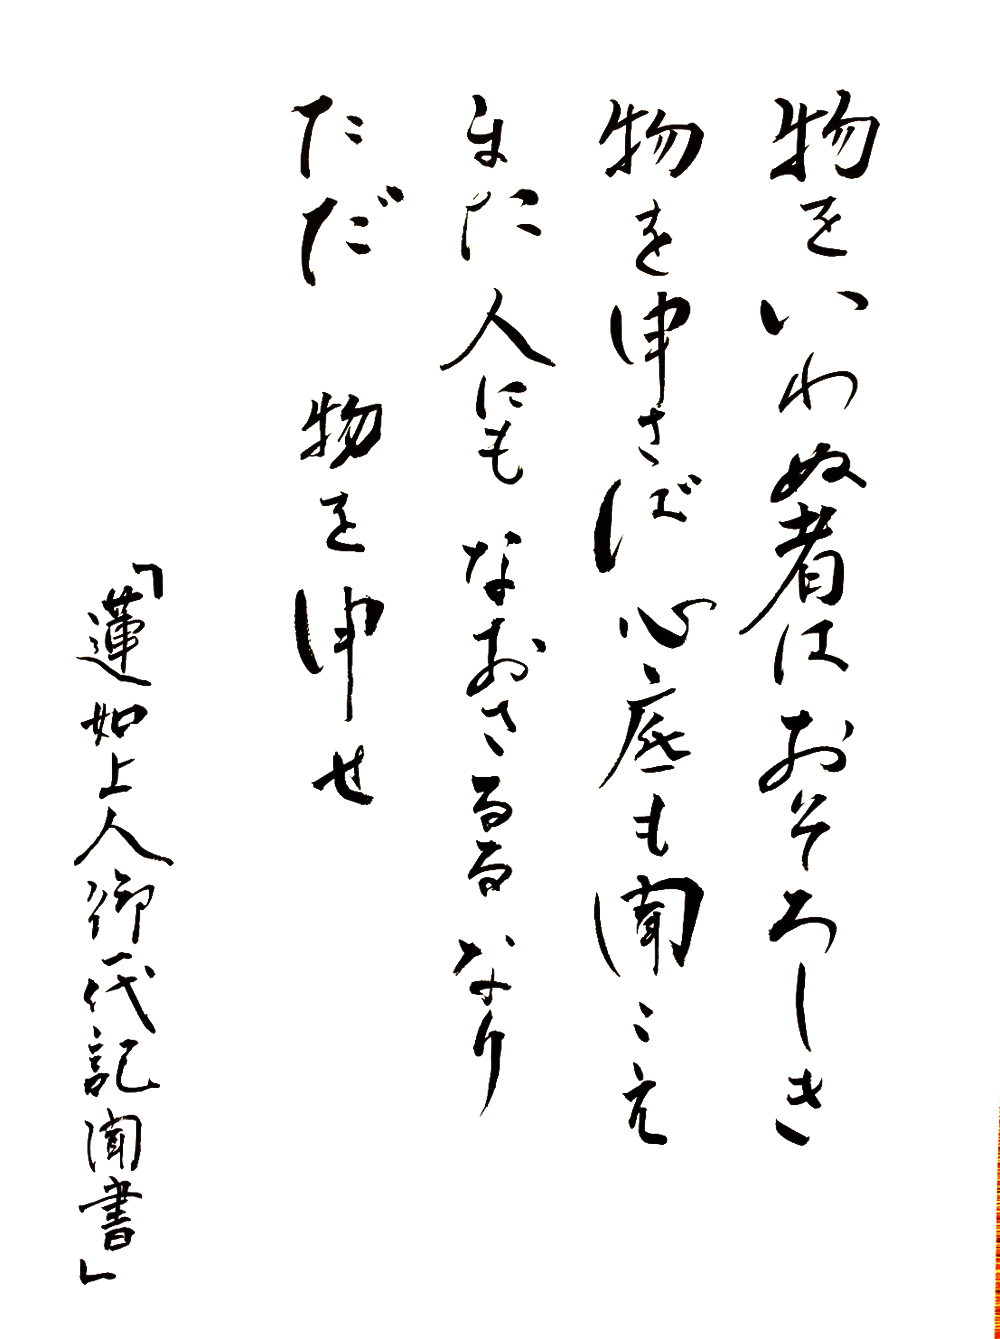 物をいわぬ者はおそろしき
物を申さば 心底も聞こえ
また人にも なおさるるなり
ただ 物を申せ
「蓮如上人御一代記聞書」